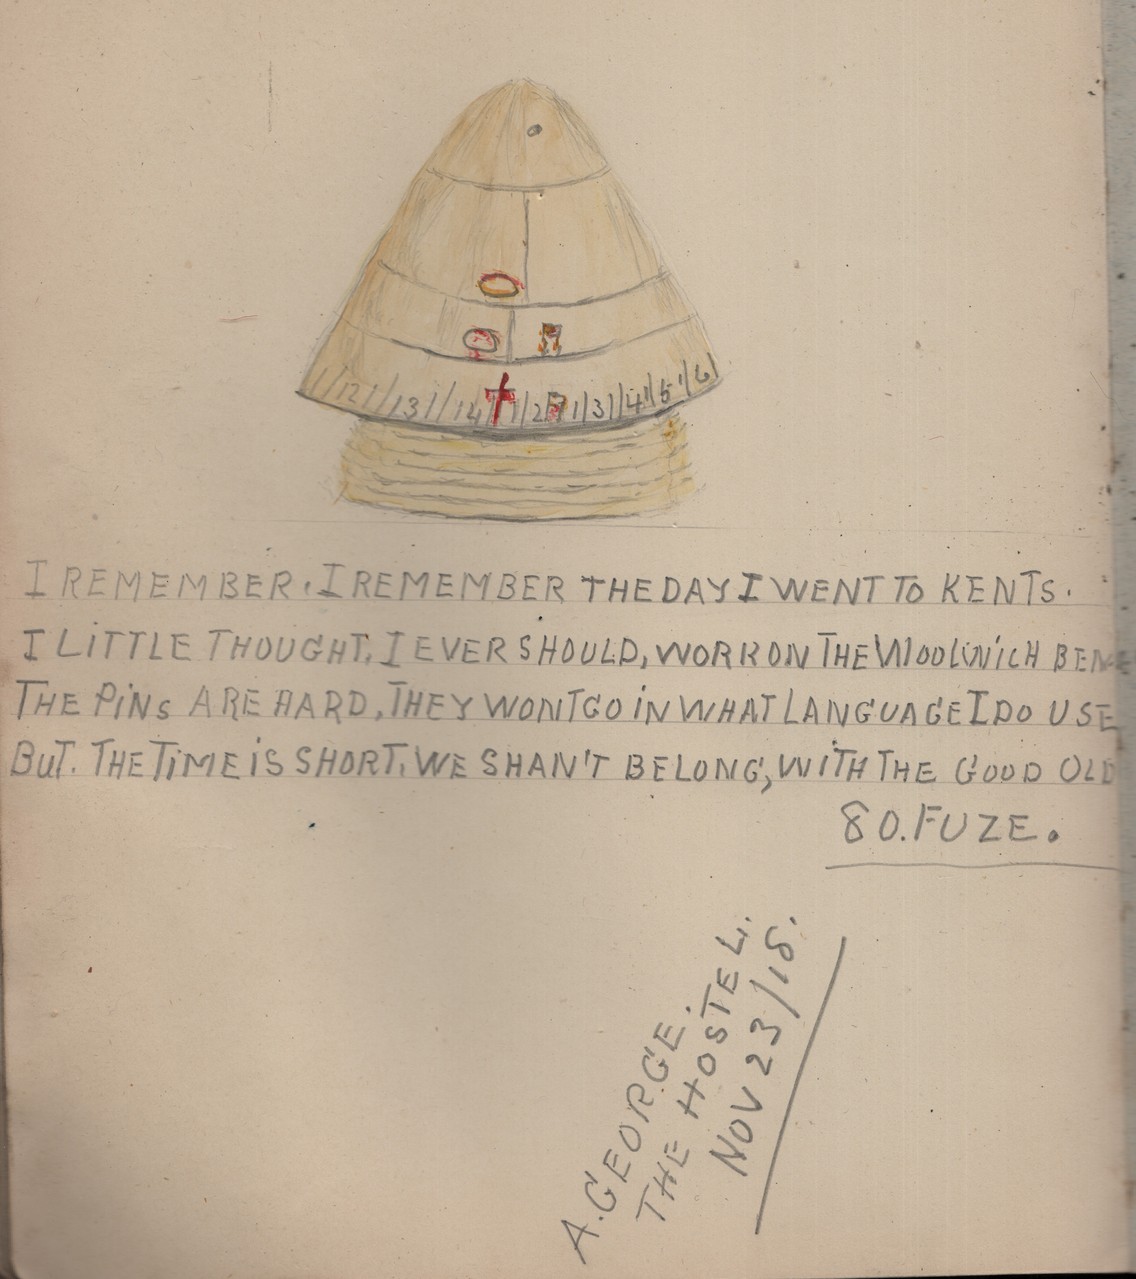 1/12 1/13 1/14 1/2 1/3 1/4 1/5 1/6
I REMEMBER. I REMEMBER THE DAY I WENT TO KENTS.
I LITTLE THOUGHT, I EVER SHOULD, WORK ON THE WOOLWICH
THE PINS ARE HARD, THEY WONT GO IN WHAT LANGUAGE I DO USE
BUT. THE TIME IS SHORT. WE SHAN'T BE LONG, WITH THE GOOD OLD
80. FUZE.
A. GEORGE.
THE HOSTEL.
NOV 23/18.